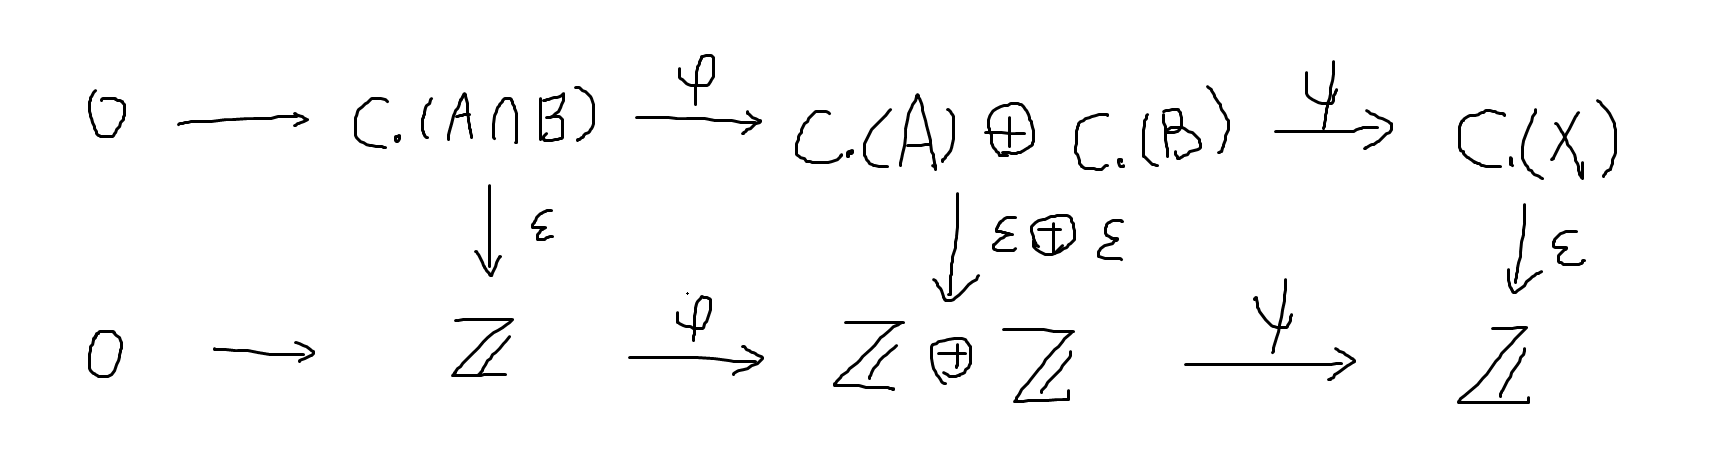 0 → C.(A∩B) →φ C.(A) ⊕ C.(B) →ψ C.(X)
↓ε ↓ε⊕ε ↓ε
0 → ℤ →φ ℤ ⊕ ℤ →ψ ℤ